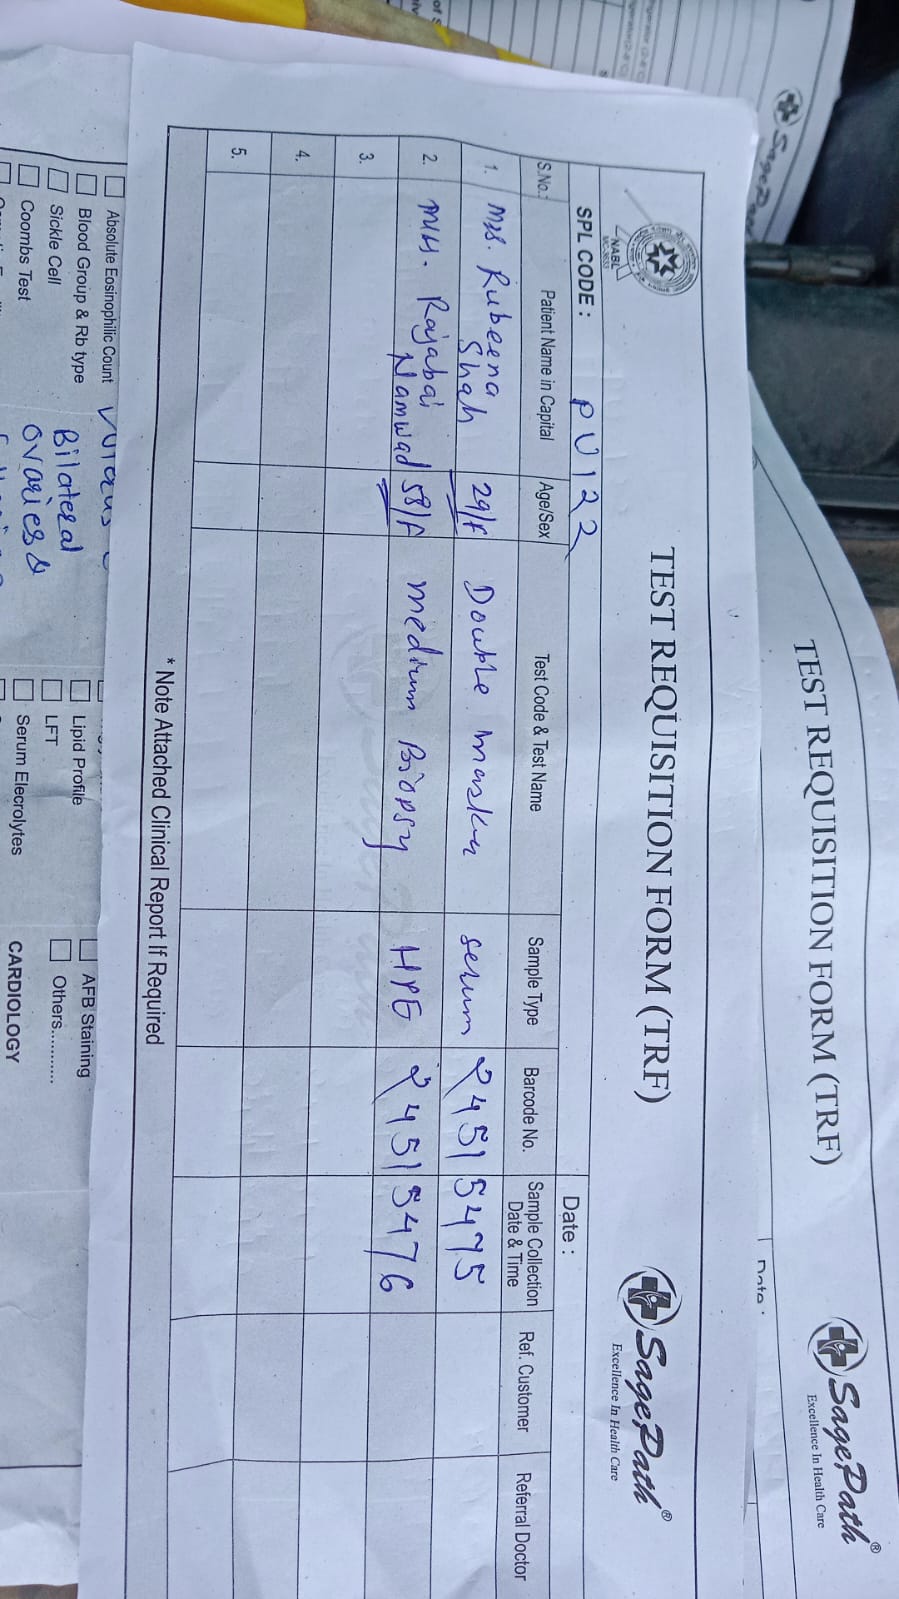 TEST REQUISITION FORM (TRF)
SagePath®
Excellence In Health Care
Date :
TEST REQUISITION FORM (TRF)
SagePath®
Excellence In Health Care
NABL
SPL CODE : PU122
Date :
S.No. Patient Name in Capital Age/Sex Test Code & Test Name Sample Type Barcode No. Sample Collection Date & Time Ref. Customer Referral Doctor
1. Mrs. Rubeena Shah 29/F Double Marker serum 24515475
2. Mrs. Rajabai Namwad 58/F medium Biopsy HPE 24515476
3.
4.
5.
* Note Attached Clinical Report If Required
Absolute Eosinophilic Count
Blood Group & Rb type
Sickle Cell
Coombs Test
Bilateral
ovaries &
Lipid Profile
LFT
Serum Elecrolytes
AFB Staining
Others............
CARDIOLOGY